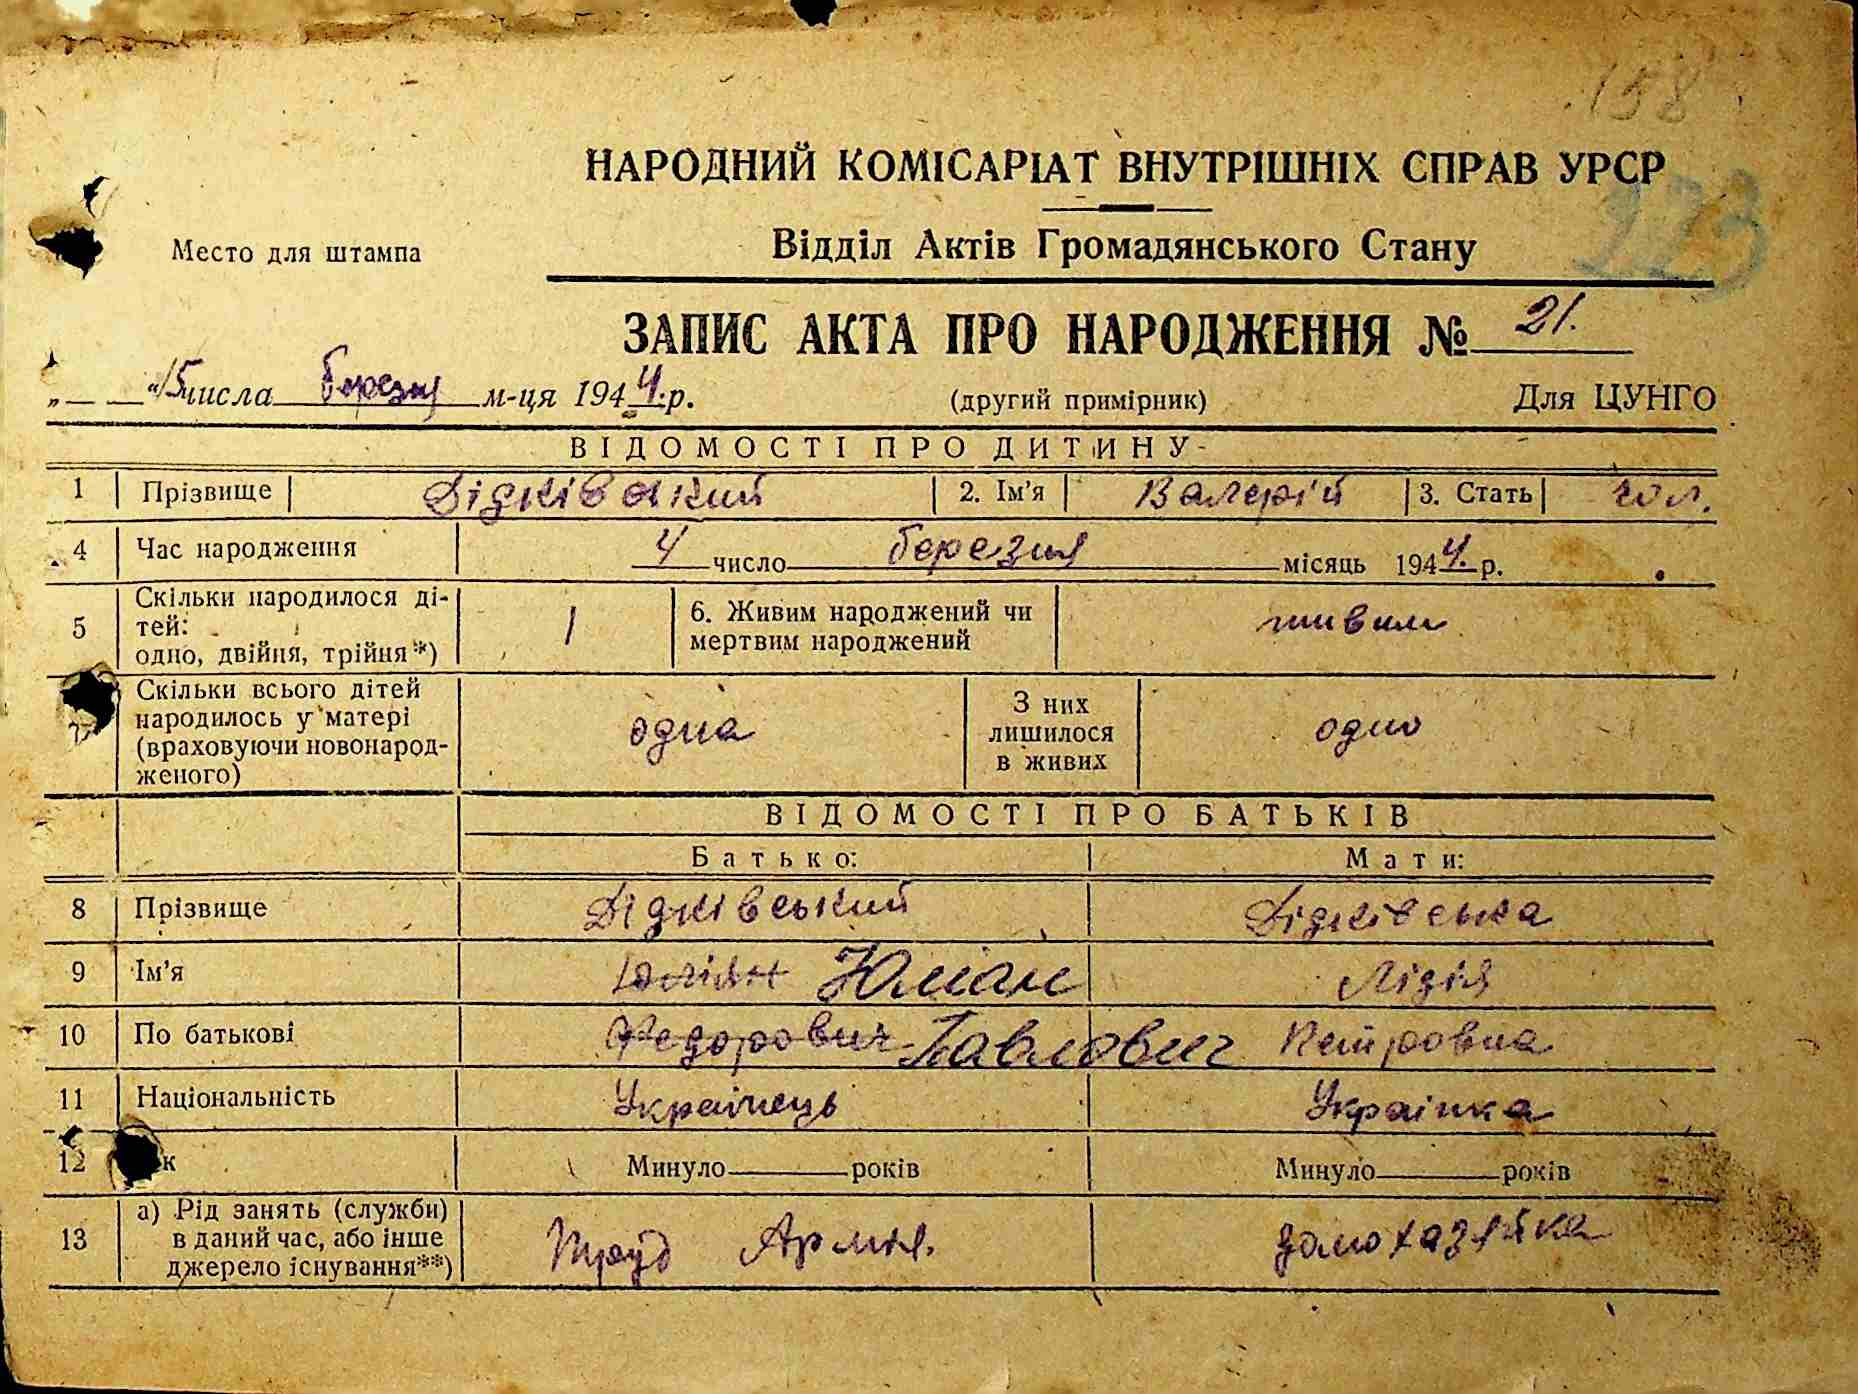 158
НАРОДНИЙ КОМІСАРІАТ ВНУТРІШНІХ СПРАВ УРСР
123
Место для штампа
Відділ Актів Громадянського Стану
ЗАПИС АКТА ПРО НАРОДЖЕННЯ № 21.
„ “ 15 числа березня м-ця 1944. р. (другий примірник) Для ЦУНГО
ВІДОМОСТІ ПРО ДИТИНУ
1 Прізвище Дідківский 2. Ім'я Валерій 3. Стать чол.
4 Час народження 4 число березня місяць 1944. р.
5 Скільки народилося ді-
тей:
одно, двійня, трійня*) 1 6. Живим народжений чи
мертвим народжений живим
7 Скільки всього дітей
народилось у матері
(враховуючи новонарод-
женого) одна З них
лишилося
в живих одно
ВІДОМОСТІ ПРО БАТЬКІВ
Батько: Мати:
8 Прізвище Дідківський Дідківська
9 Ім'я Юліян Юліан Лідія
10 По батькові Федорович Павлович Петровна
11 Національність Українець Українка
12 к Минуло років Минуло років
13 а) Рід занять (служби)
в даний час, або інше
джерело існування**) Труд Армия. домохазяйка